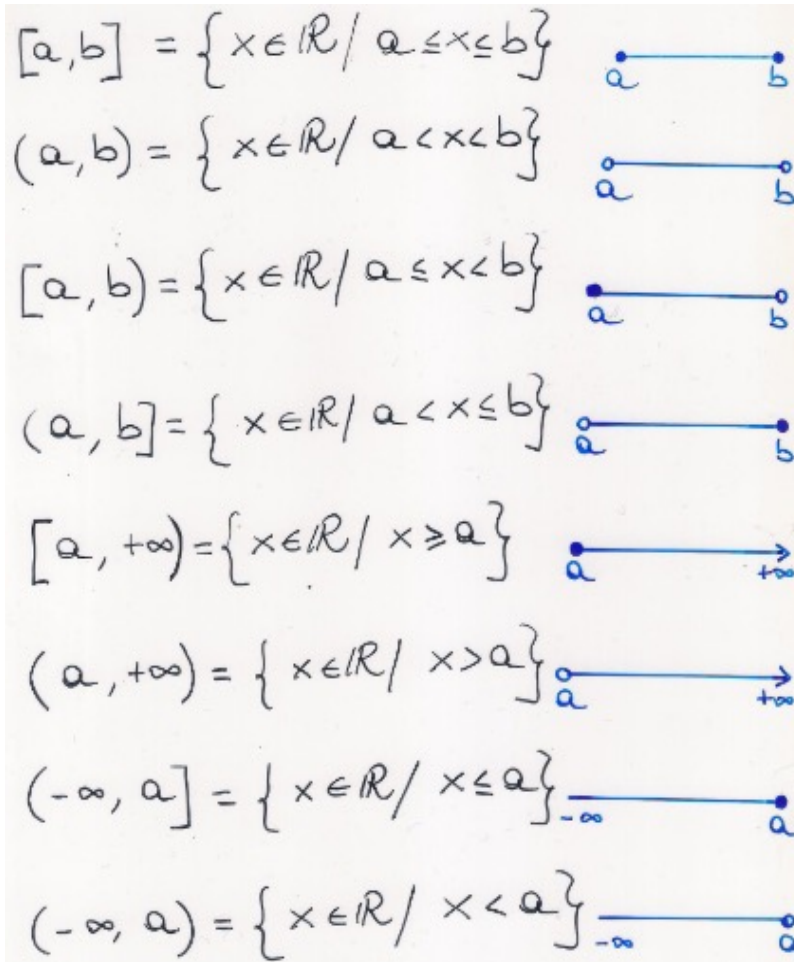 [a,b] = {x∈ℝ/ a≤x≤b} a b
(a,b) = {x∈ℝ/ a<x<b} a b
[a,b) = {x∈ℝ/ a≤x<b} a b
(a,b] = {x∈ℝ/ a<x≤b} a b
[a,+∞) = {x∈ℝ/ x≥a} a +∞
(a,+∞) = {x∈ℝ/ x>a} a +∞
(-∞,a] = {x∈ℝ/ x≤a} -∞ a
(-∞,a) = {x∈ℝ/ x<a} -∞ a